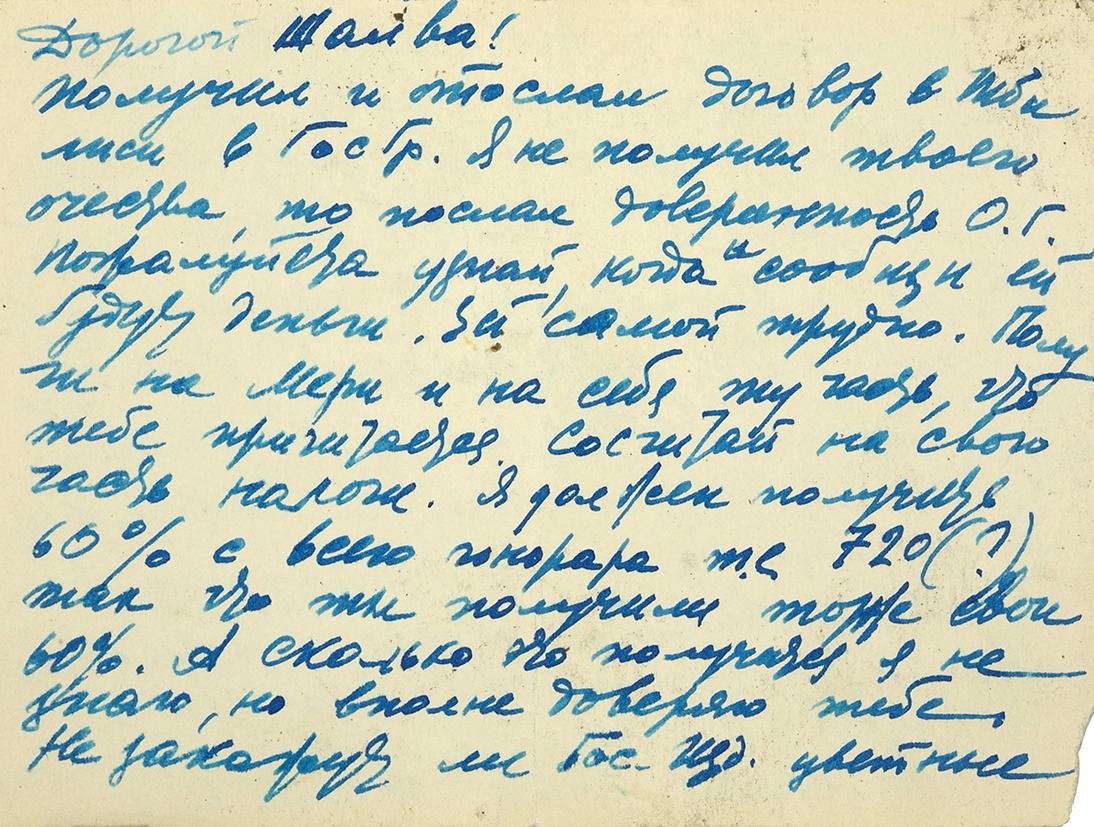 Дорогой Шалва!
Получил и отослал договор в Тби
лиси в Гос Гр. Я не получил твоего
очества, то послал доверенность О.Г.
Пожалуйста узнай, когда и сообщи ей
будут деньги. Ей самой трудно. Полу
чи на Мери и на себя ту часть, что
тебе причитается. Сосчитай на свою
часть налоги. Я должен получить
60% с всего гонорара т.е. 720 (?)
так что ты получили тоже свои
60%. А сколько это получится я не
знаю, но вполне доверяю тебе.
Не закажут ли Гос. Изд. цветные